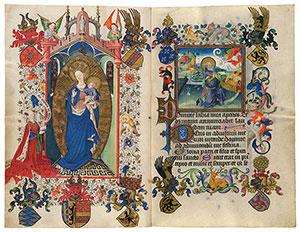 Domine labia mea aperies Et
os meum annunciabit lau
dem tuam
Deus in adiutorium
meum intende Domine
ad adiuuandum me festina
Gloria patri et filio et spi
ritui sancto Sicut erat in pri
cipio et nunc et semper et in se